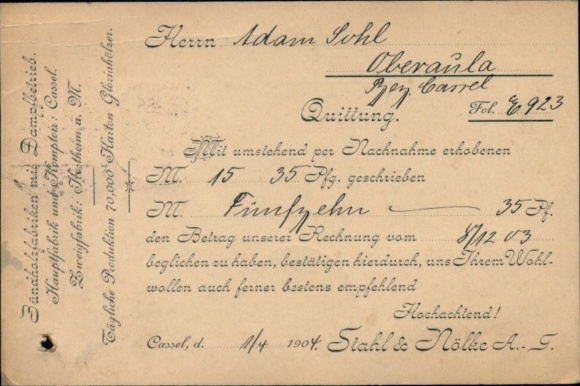 Zündholzfabriken mit Dampfbetrieb.
Hauptfabrik und Komptoir: Cassel.
Zweigfabrik: Kostheim a. M.
Tägliche Produktion 70,000 Karton Gloriahölzer.
Herrn Adam Sohl
Oberaula
Bez. Cassel
Quittung. Fol. E 923
Mit umstehend per Nachnahme erhobenen
M. 15 35 Pfg. geschrieben
M. Fünfzehn — 35 Pf.
den Betrag unserer Rechnung vom 8/12 03
beglichen zu haben, bestätigen hierdurch, uns Ihrem Wohl-
wollen auch ferner bestens empfehlend
Hochachtend!
Cassel, d. 1/4 1904. Stahl & Nölke A.-G.